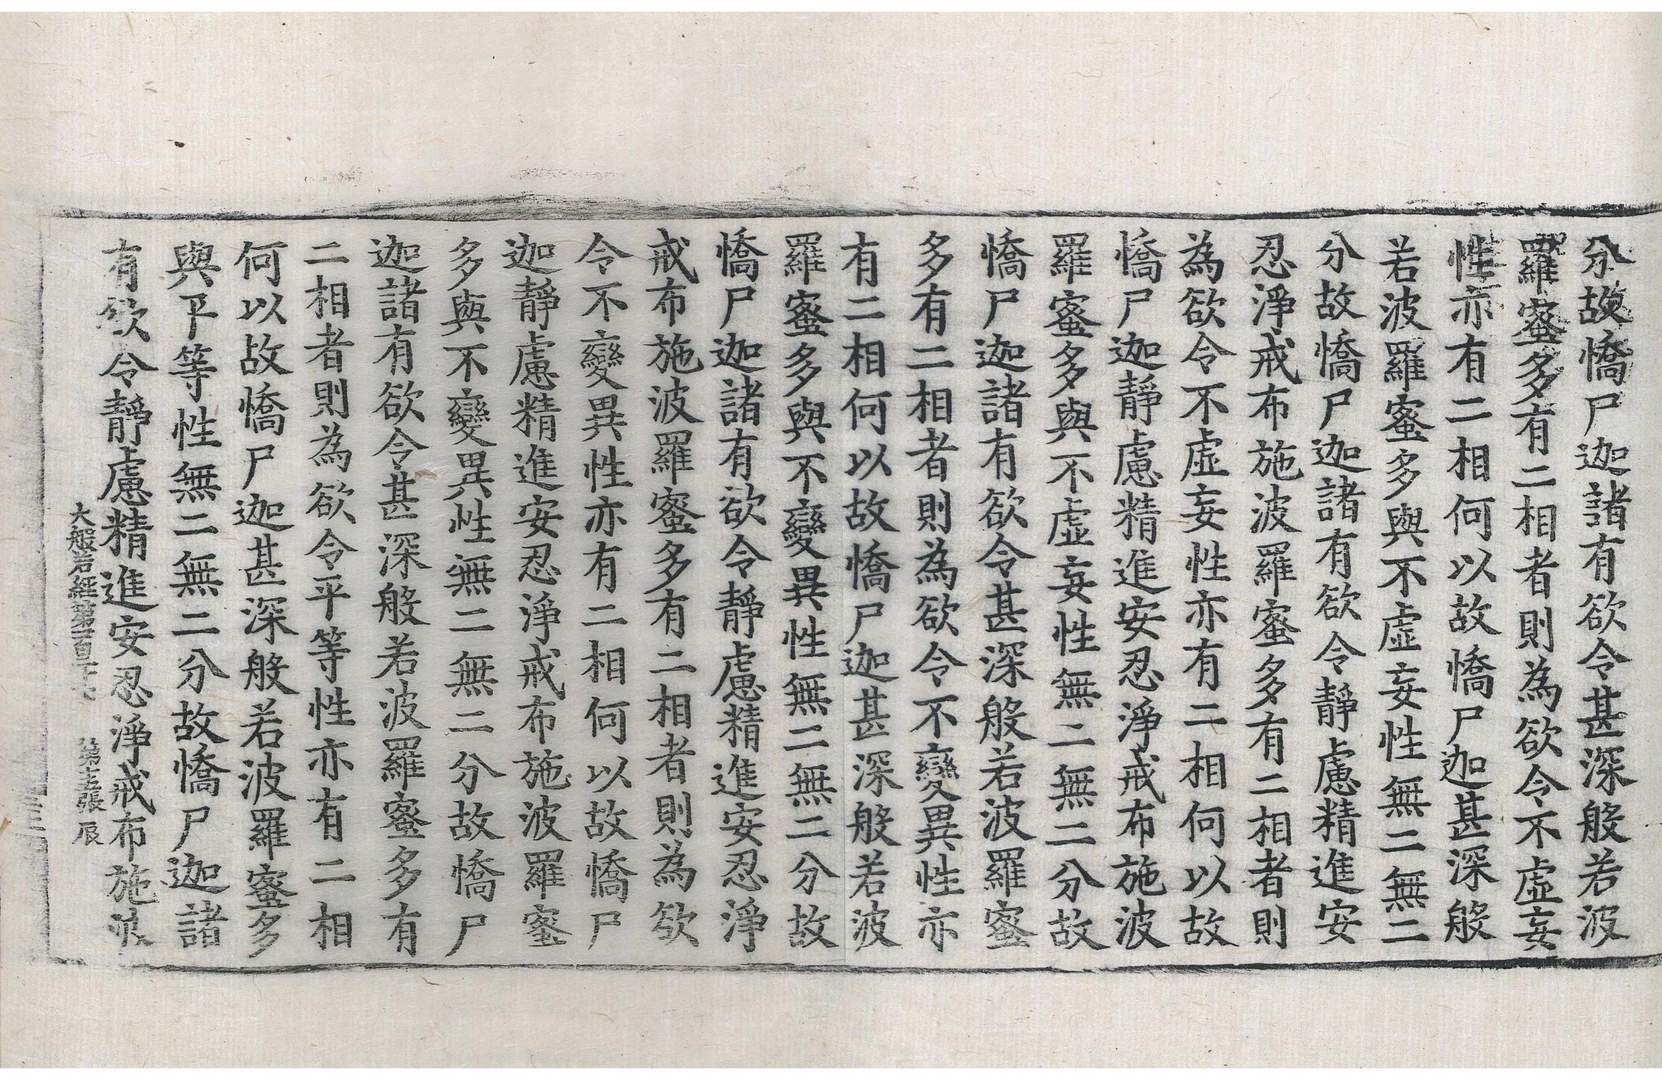 分故憍尸迦諸有欲令甚深般若波
羅蜜多有二相者則為欲令不虛妄
性亦有二相何以故憍尸迦甚深般
若波羅蜜多與不虛妄性無二無二
分故憍尸迦諸有欲令靜慮精進安
忍淨戒布施波羅蜜多有二相者則
為欲令不虛妄性亦有二相何以故
憍尸迦靜慮精進安忍淨戒布施波
羅蜜多與不虛妄性無二無二分故
憍尸迦諸有欲令甚深般若波羅蜜
多有二相者則為欲令不變異性亦
有二相何以故憍尸迦甚深般若波
羅蜜多與不變異性無二無二分故
憍尸迦諸有欲令靜慮精進安忍淨
戒布施波羅蜜多有二相者則為欲
令不變異性亦有二相何以故憍尸
迦靜慮精進安忍淨戒布施波羅蜜
多與不變異性無二無二分故憍尸
迦諸有欲令甚深般若波羅蜜多有
二相者則為欲令平等性亦有二相
何以故憍尸迦甚深般若波羅蜜多
與平等性無二無二分故憍尸迦諸
有欲令靜慮精進安忍淨戒布施波
大般若經第一百 張 辰